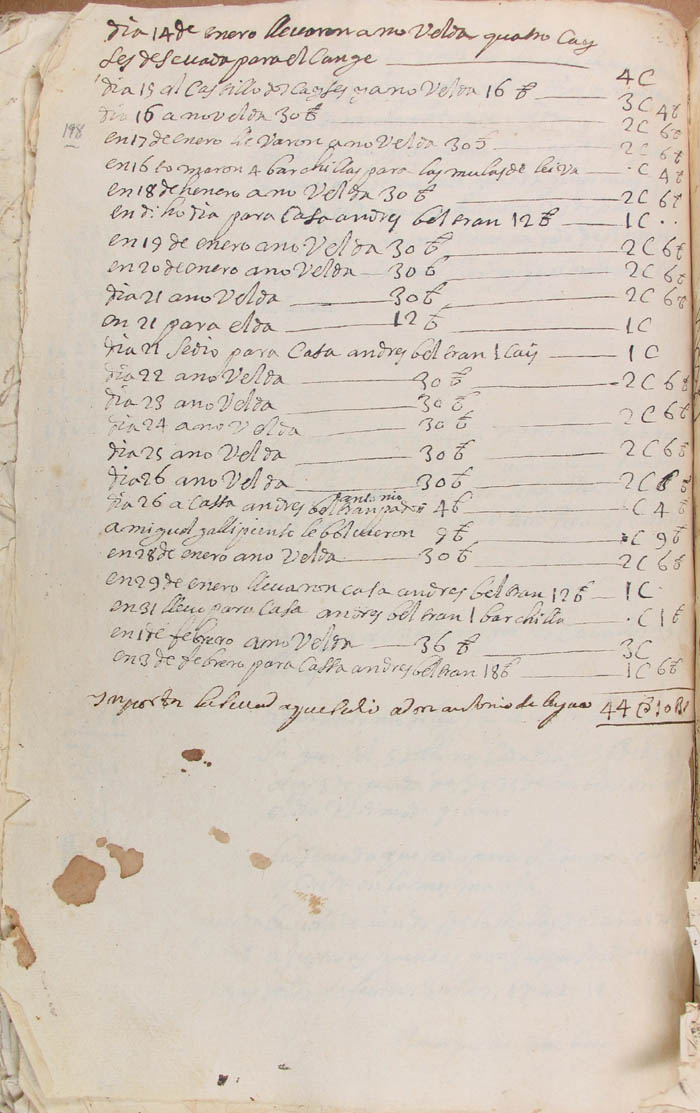 dia 14 de enero llevaron a no Velda quatro Cay
ses de sevada para el Cange 4 C
dia 15 al Castillo dos Cayses y a no Velda 16 ƀ 3 C 4 ƀ
dia 16 a no velda 30 ƀ 2 C 6 ƀ
198
en 17 de enero lle Varon a no Velda 30 ƀ 2 C 6 ƀ
en 16 to maron 4 barchillas para las mulas de leiva · C 4 ƀ
en 18 de henero a no Velda 30 ƀ 2 C 6 ƀ
en di ho dia para Casa andres bel tran 12 ƀ 1 C · ·
en 19 de enero a no Velda 30 ƀ 2 C 6 ƀ
en 20 de enero a no Velda 30 ƀ 2 C 6 ƀ
dia 21 a no Velda 30 ƀ 2 C 6 ƀ
en 21 para elda 12 ƀ 1 C
dia 21 Se dio para Casa andres bel tran 1 Cais 1 C
dia 22 a no Velda 30 ƀ 2 C 6 ƀ
dia 23 a no Velda 30 ƀ
dia 24 a no Velda 30 ƀ 2 C 6 ƀ
dia 25 a no Velda 30 ƀ 2 C 6 ƀ
dia 26 a no Velda 30 ƀ 2 C 6 ƀ
antonio
dia 26 a Cassa andres beltran 4 ƀ · C 4 ƀ
a migual le bolvieron 9 ƀ · C 9 ƀ
en 28 de enero a no Velda 30 ƀ 2 C 6 ƀ
en 29 de enero llevaron casa andres bel tran 12 ƀ 1 C ·
en 31 llevo para Casa andres bel tran 1 barchilla · C 1 ƀ
en 1 de febrero a no Velda 36 ƀ 3 C
en 3 de febrero para Cassa andres beltran 18 ƀ 1 C 6 ƀ
Inportn la sevad a que salio a don antonio de 44 C 10 B